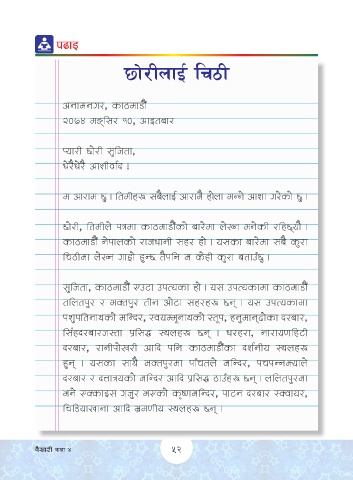 पढाइ
छोरीलाई चिठी
अनामनगर, काठमाडौँ
२०७४ मङ्सिर १०, आइतबार
प्यारी छोरी सुजिता,
धेरैधेरै आशीर्वाद ।
म आराम छु । तिमीहरू सबैलाई आरामै होला भन्ने आशा गरेको छु ।
छोरी, तिमीले पत्रमा काठमाडौँको बारेमा लेख्न भनेकी रहिछ्यौ ।
काठमाडौँ नेपालको राजधानी सहर हो । यसका बारेमा सबै कुरा
चिठीमा लेख्न गाह्रो हुन्छ तैपनि म केही कुरा बताउँछु ।
सुजिता, काठमाडौँ एउटा उपत्यका हो । यस उपत्यकामा काठमाडौँ
ललितपुर र भक्तपुर तीन ओटा सहरहरू छन् । यस उपत्यकामा
पशुपतिनाथको मन्दिर, स्वयम्भूनाथको स्तूप, हनुमान्ढोका दरबार,
सिंहदरबारजस्ता प्रसिद्ध स्थलहरू छन् । धरहरा, नारायणहिटी
दरबार, रानीपोखरी आदि पनि काठमाडौँका दर्शनीय स्थलहरू
हुन् । यसका साथै भक्तपुरमा पाँचतले मन्दिर, पचपन्नझ्याले
दरबार र दत्तात्रयको मन्दिर आदि प्रसिद्ध ठाउँहरू छन् । ललितपुरमा
भने एक्काइस गजुर भएको कृष्णमन्दिर, पाटन दरबार स्क्वायर,
चिडियाखाना आदि भ्रमणीय स्थलहरू छन् ।
वैखरी कक्षा ४
५२